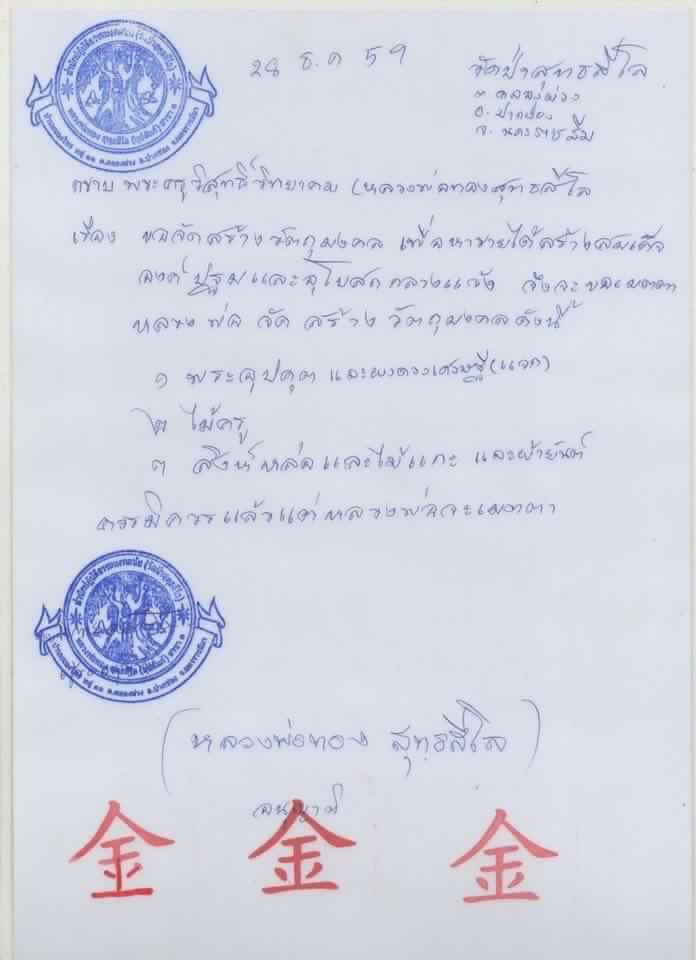 24 ธ.ค 59
วัดป่าสุทธสีโล
ต คลองม่วง
อ. ปากช่อง
จ. นครราชสีมา
กราบ พระครูวิสุทธิ์วิทยาคม (หลวงพ่อทองสุทธสีโล
เรื่อง ขอจัดสร้างวัตถุมงคล เพื่อหารายได้สร้างสมเด็จ
องค์ปฐมและอุโบสถกลางแจ้ง จึงจะขอเมตตา
หลวงพ่อ จัด สร้าง วัตถุมงคลดังนี้
๑ พระอุปคุต และผงดวงเศรษฐี(แจก)
๒ ไม้ครู
๓ สิงห์หล่อและไม้แกะ และผ้ายันต์
ควรมิควรแล้วแต่หลวงพ่อจะเมตตา
(หลวงพ่อทอง สุทธสีโล)
อนุญาต
金 金 金